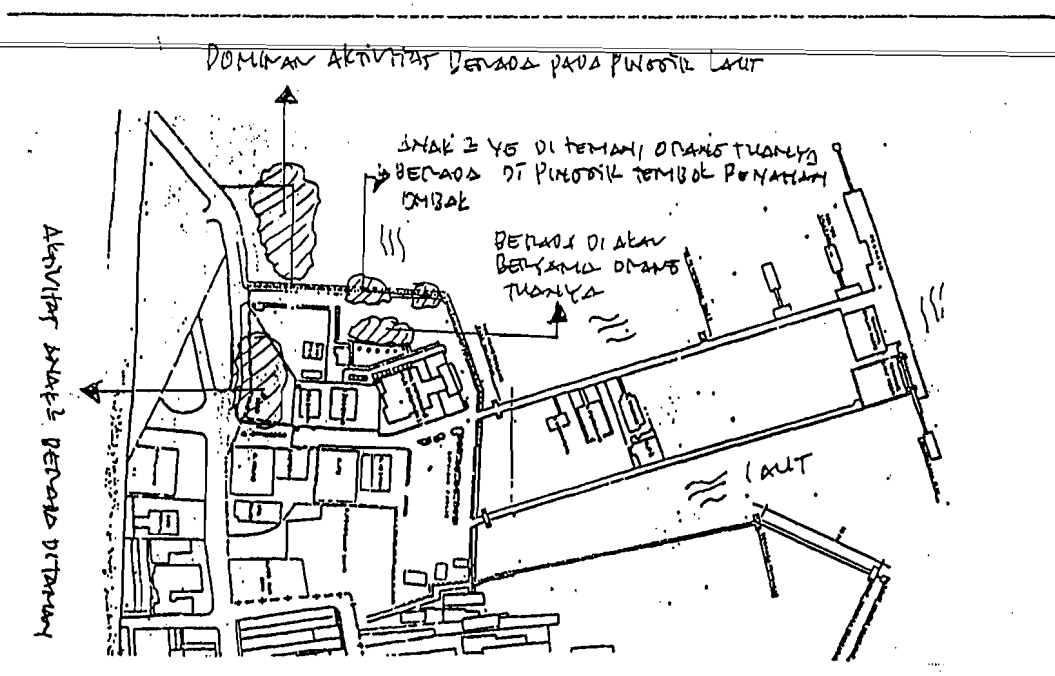 DOMINAN AKTIVITAS BERADA PADA PINGGIR LAUT
ANAK2 YG DI TEMANI ORANG TUANYA
BERADA DI PINGGIR TEMBOK PENAHAN
OMBAK
BERADA DI
BERSAMA ORANG
TUANYA
AKTIVITAS ANAK2 BERADA DITAMAN
LAUT